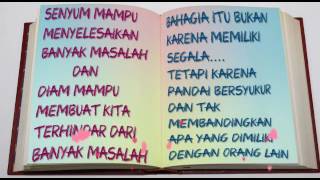 SENYUM MAMPU
MENYELESAIKAN
BANYAK MASALAH
DAN
DIAM MAMPU
MEMBUAT KITA
TERHINDAR DARI
BANYAK MASALAH
BAHAGIA ITU BUKAN
KARENA MEMILIKI
SEGALA....
TETAPI KARENA
PANDAI BERSYUKUR
DAN TAK
MEMBANDINGKAN
APA YANG DIMILIKI
DENGAN ORANG LAIN